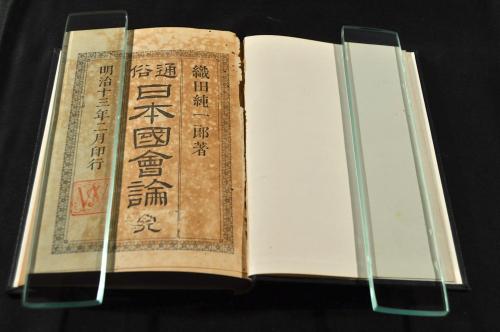 織田純一郎著
通俗
日本國會論
完
明治十三年二月印行